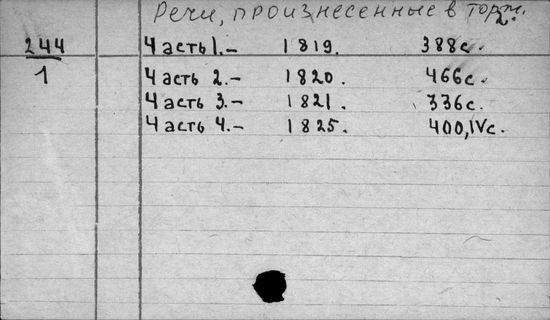 Речи, произнесенные в торж.
2.
244 Часть 1.- 1819. 388с.
1 Часть 2.- 1820. 466с.
Часть 3.- 1821. 336с.
Часть 4.- 1825. 400,IVс.